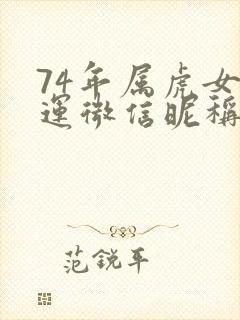 74年属虎女
運微信昵稱
范銳平